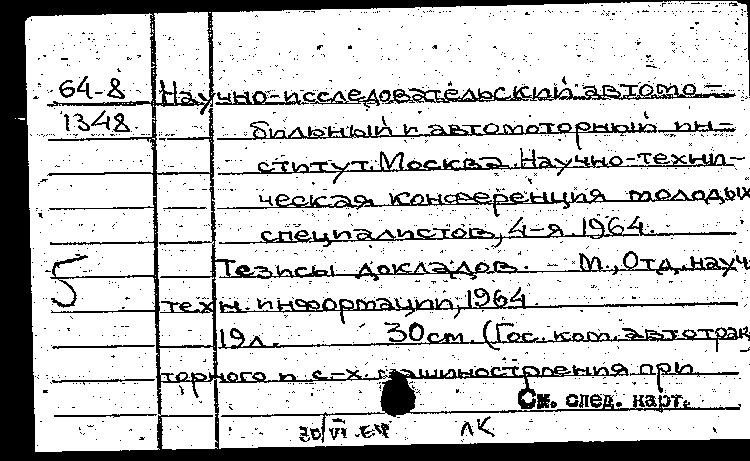 64-8
1348
Научно-исследовательский автомо-
бильный и автомоторный ин-
ститут. Москва. Научно-техни-
ческая конференция молодых
специалистов, 4-я 1964.
Тезисы докладов. - М., Отд. науч.
5
техн. информации, 1964.
19л. 30см. (Гос. ком. автотрак
торного и с.-х. машиностроения при
См. след. карт.
30/VI
ЛК